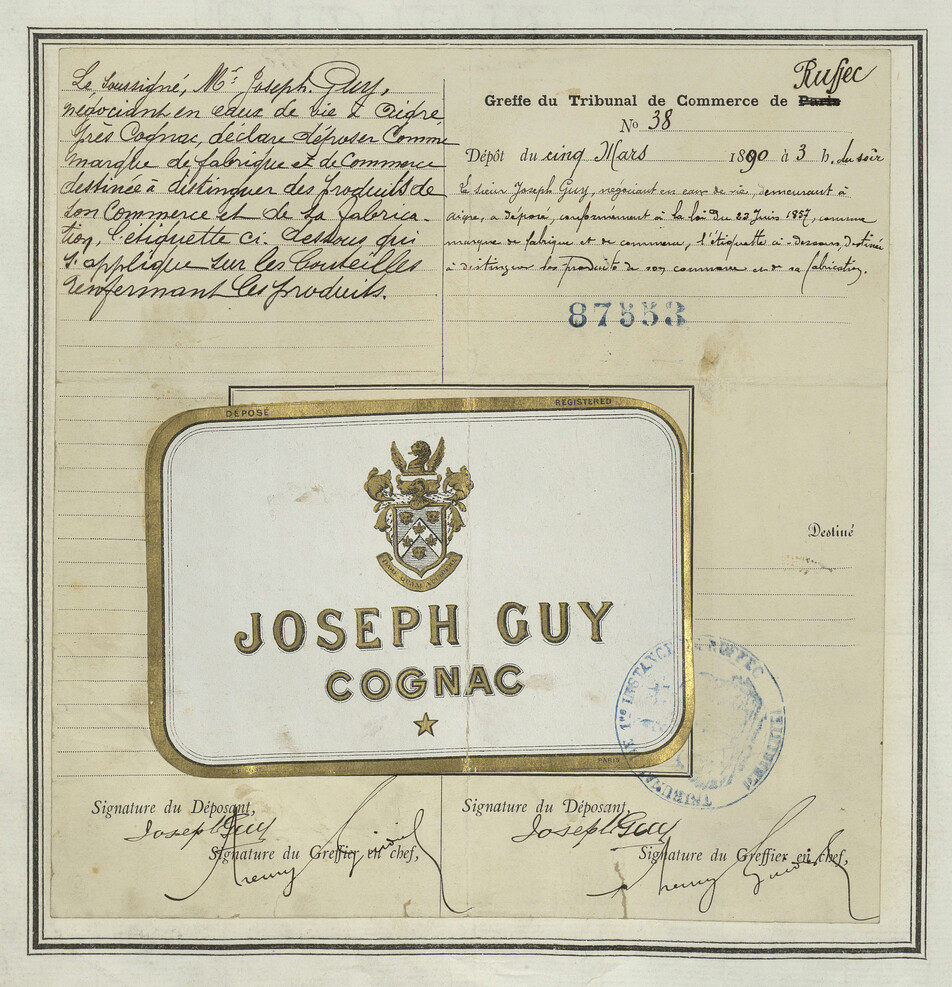 Le soussigné, Mr Joseph Guy,
négociant en eaux de vie à Aigre
près Cognac, déclare déposer comme
marque de fabrique et de commerce
destinée à distinguer des produits de
son commerce et de sa fabrica-
tion, l'étiquette ci-dessous qui
s'applique sur les bouteilles
renfermant les produits.
Ruffec
Greffe du Tribunal de Commerce de Paris
No 38
Dépôt du cinq Mars 1890 à 3 h. du soir
Le sieur Joseph Guy, négociant en eaux de vie, demeurant à
Aigre, a déposé, conformément à la loi du 23 Juin 1857, comme
marque de fabrique et de commerce, l'étiquette ci-dessous, destinée
à distinguer les produits de son commerce et de sa fabrication.
87553
DÉPOSÉ
REGISTERED
JOSEPH GUY
COGNAC
Destiné
TRIBUNAL DE 1re INSTANCE DE RUFFEC
PARIS
Signature du Déposant,
Joseph Guy
Signature du Greffier en chef,
Signature du Déposant,
Joseph Guy
Signature du Greffier en chef,